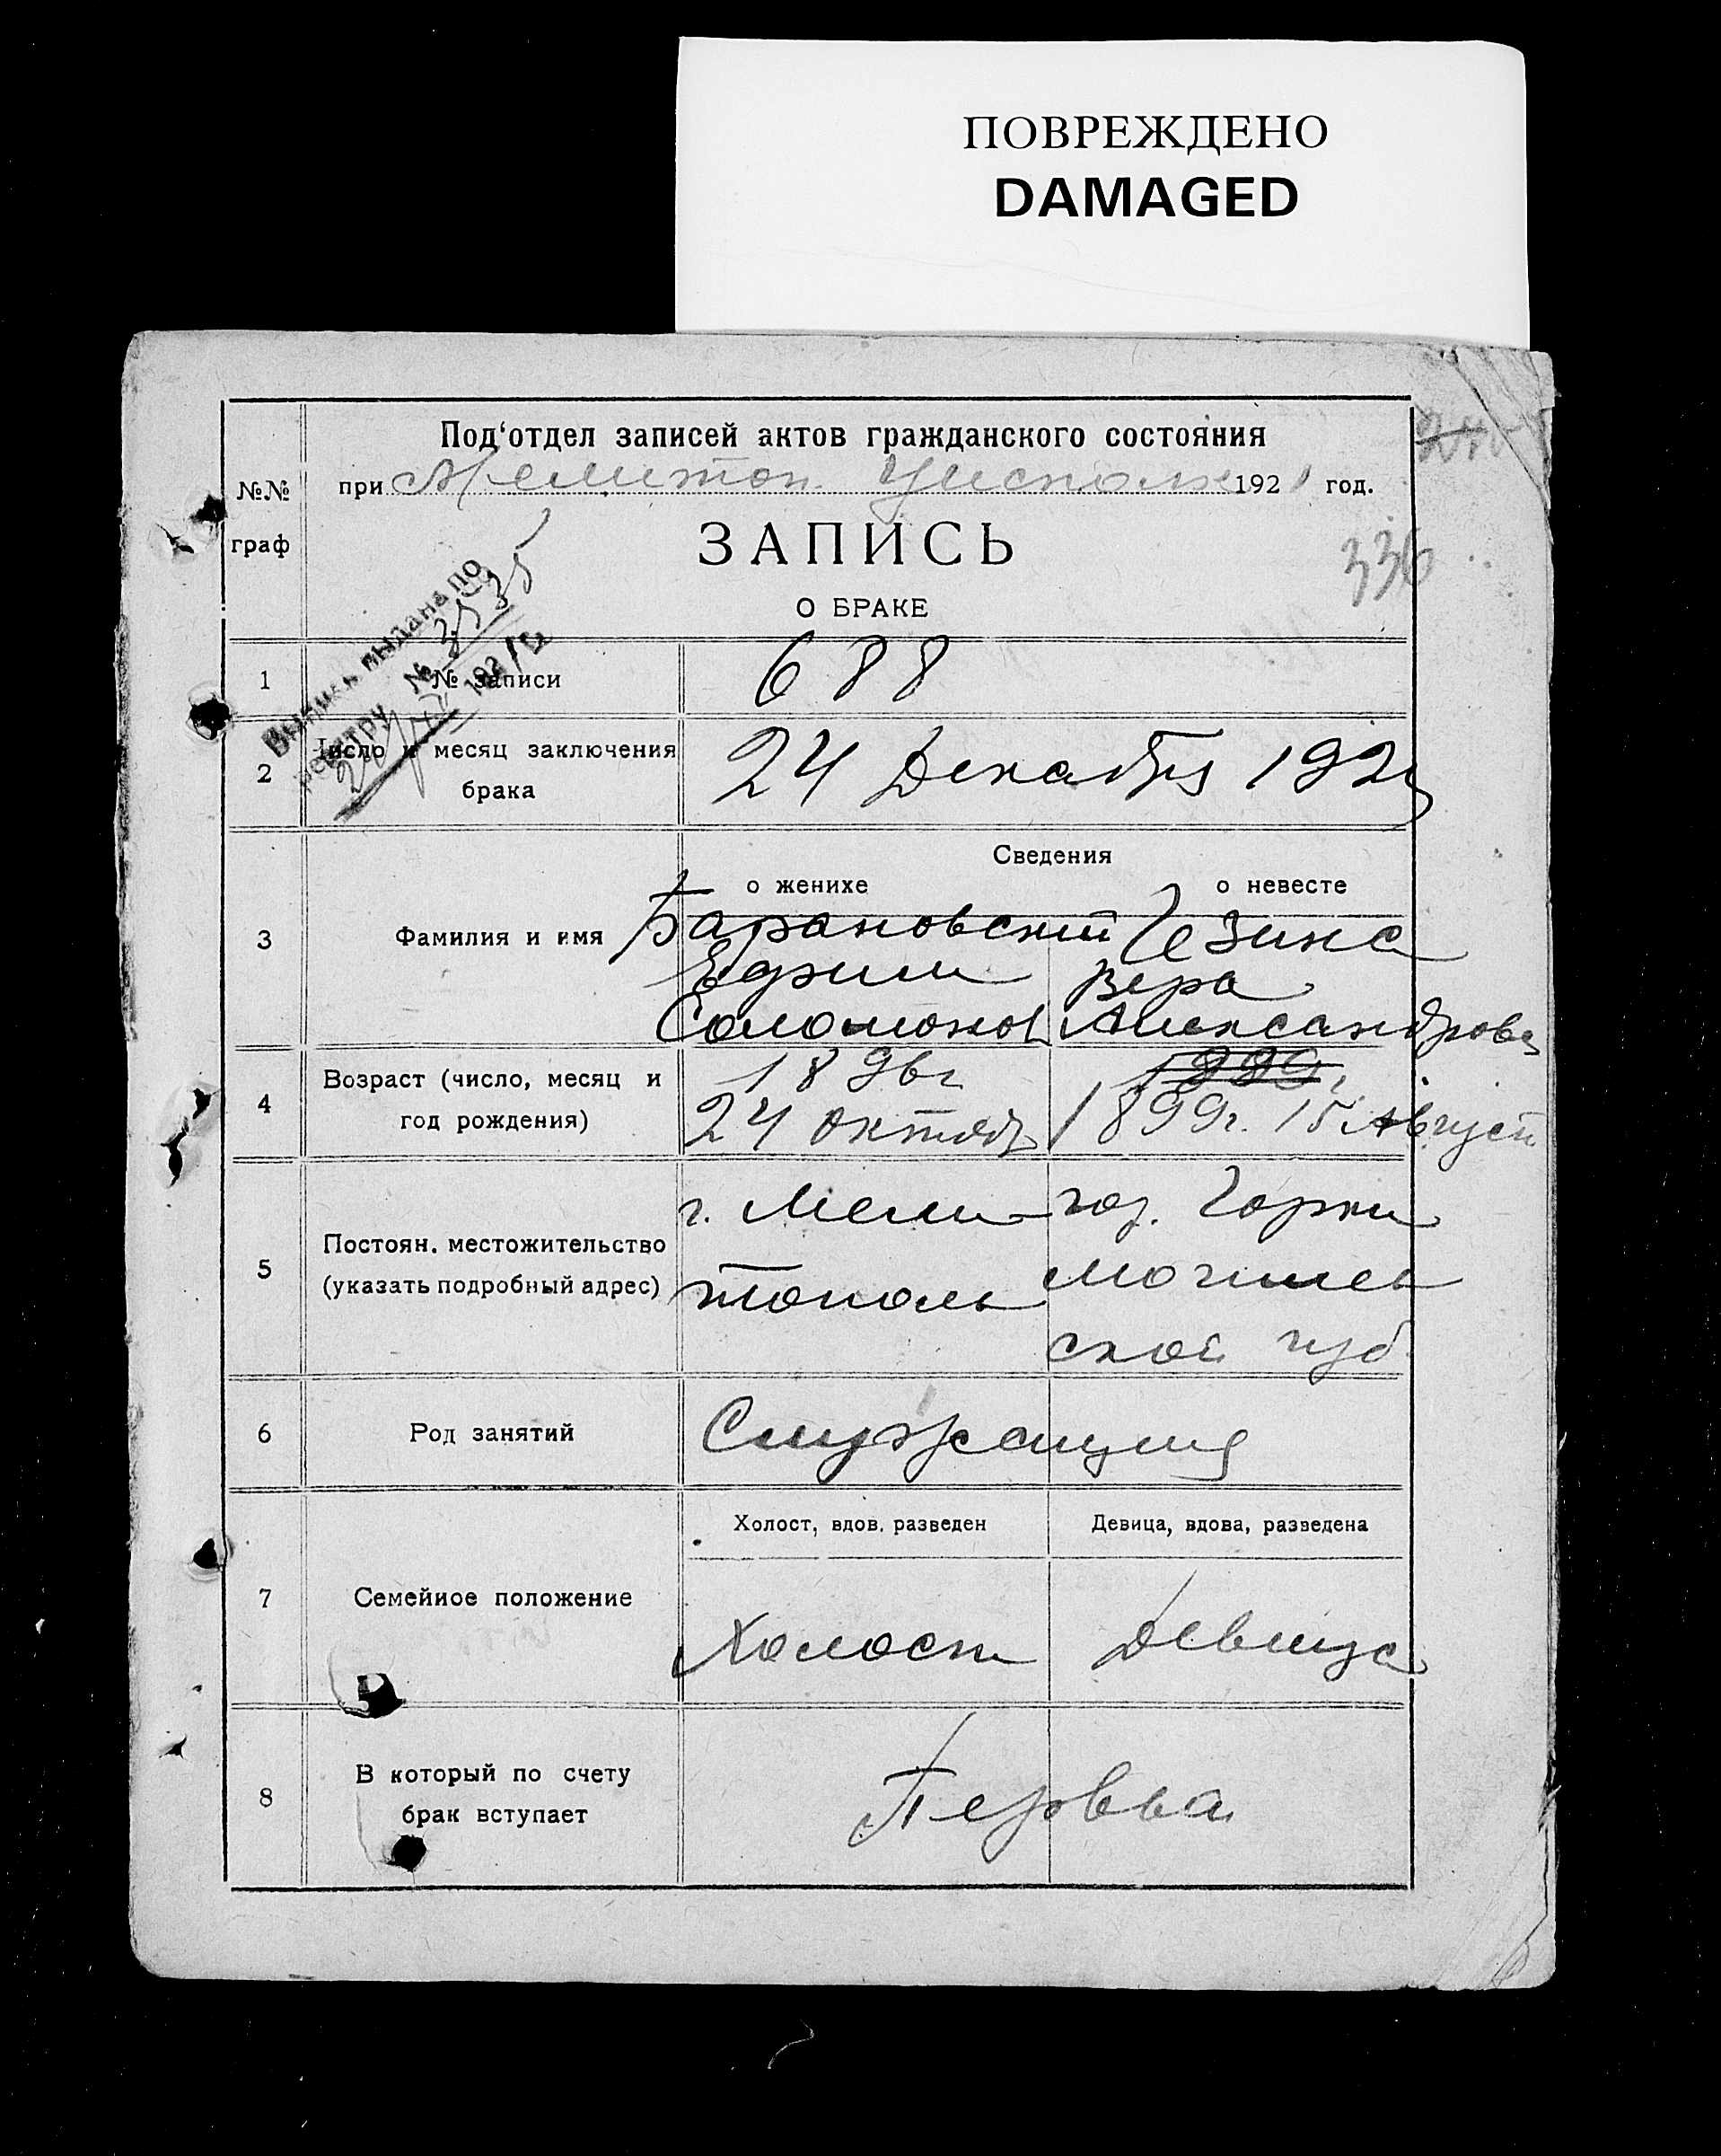 ПОВРЕЖДЕНО
DAMAGED
Под‘отдел записей актов гражданского состояния
№№ граф
при Мелитоп. Уисполк 1921 год.
ЗАПИСЬ
336
О БРАКЕ
Выпись выдана по
реестру № 3535
1 № записи 688
2 Число и месяц заключения 24 Декабря 1921
брака
Сведения
о женихе о невесте
3 Фамилия и имя Барановский
Ефим Вера
Соломонов Александрова
4 Возраст (число, месяц и год рождения) 1896г
24 октяб 1899г. 15 Август
5 Постоян. местожительство (указать подробный адрес) г. Мели- гор. Горки
тополь Могилев
ской губ
6 Род занятий Служащия
Холост, вдов, разведен Девица, вдова, разведена
7 Семейное положение Холост Девица
8 В который по счету
брак вступает Первва